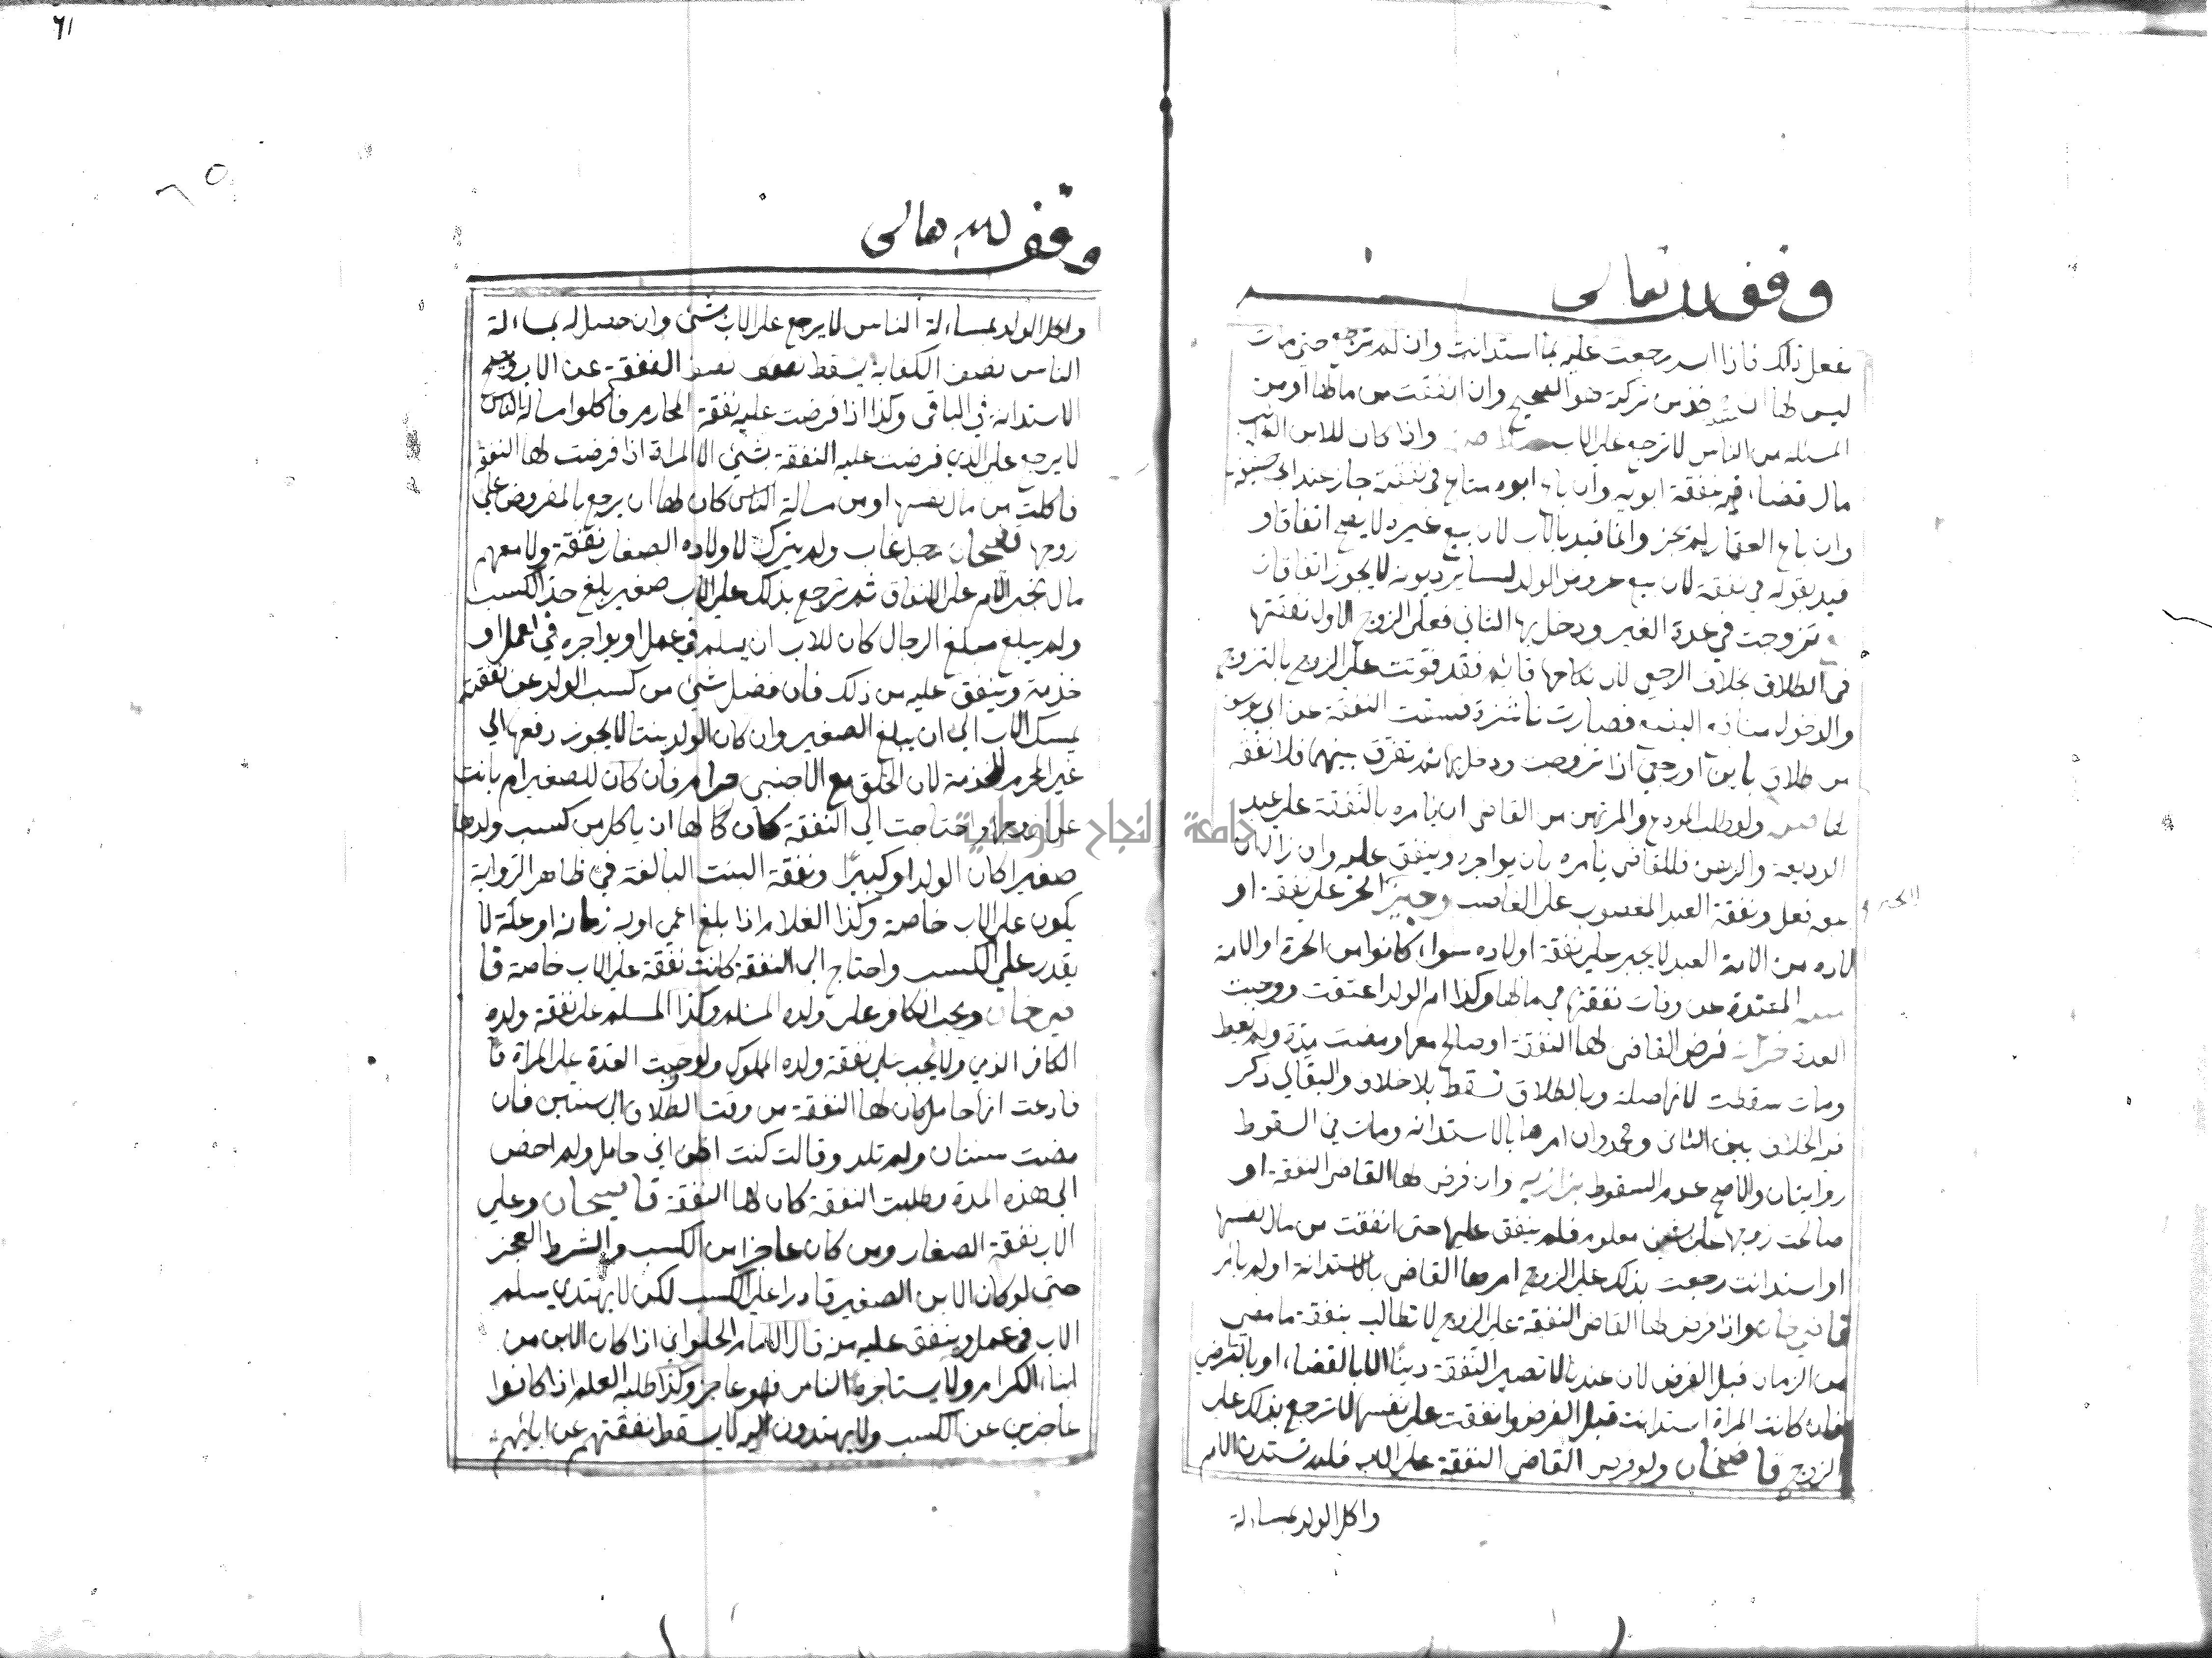 وقف لله تعالى
يفعل ذلك فاذا رجعت عليه بما استدانت وان لم ترجع حتى مات
ليس لها ان تاخذ من تركته هو الصحيح وان انفقت من مالها او من
المسئلة من الناس لا ترجع على الاب واذا كان للابن الغايب
مال قضى فيه بنفقة ابويه وان باع ابوه متاعه في نفقته جاز عند ابي حنيفة
وان باع العقار لم تجز وانما قيد بالاب لان بيع غيره لا يصح اتفاقا و
قيد بقوله في نفقة لان بيع عروض الولد لساير ديونه لا يجوز اتفاقا
تزوجت في عدة الغير ودخل بها الثاني فعلى الزوج الاول نفقتها
في الطلاق بخلاف الرجعي لان نكاحها قايم فقد فوتت على الزوج بالتزوج
والدخول منافع البضع فصارت ناشزة فسقطت النفقة عن ابي يوسف
من طلاق باين او رجعي اذا تزوجت ودخل بها ثم تفرق بينهما فلا نفقة
لها ولو طلب المودع والمرتهن من القاضي ان يامره بالنفقة على عبد
الوديعة والرهن فللقاضي يامره بان يواجره وينفق عليه وان
فعل ونفقة العبد المغصوب على الغاصب وجيز الحر على نفقة او
الحر
لاده من الامة العبد لا يجبر على نفقة اولاده سوا كانوا من الحرة او الامة
المعتدة عن وفات نفقتها في مالها وكذا ام الولد اعتقت ووجبت
العدة خزانة فرض القاضي لها النفقة او صالح معها ومضت مدة ولم يعط
ومات سقطت لانها صلة وبالطلاق تسقط بلا خلاف والبقالي ذكر
فيه الخلاف بين الثاني ومحمد وان امرها بالاستدانة ومات في السقوط
روايتان والاصح عدم السقوط بزازيه وان فرض لها القاضي النفقة او
صالحت زوجها على شئ معلوم فلم ينفق عليها حتى انفقت من مال نفسها
او استدانت رجعت بذلك على الزوج امرها القاضي بالاستدانة او لم يامر
قاضيخان واذا فرض لها القاضي النفقة على الزوج لا تطالب بنفقة ما مضى
من الزمان قبل الفرض لان عندنا لا تصير النفقة دينا الا بالقضاء او بالتراضي
فان كانت المراة استدانت قبل الفرض وانفقت على نفسها لا ترجع بذلك على
الزوج قاضيخان ولو فرض القاضي النفقة على الاب فلم تستدن الام
واكل الولد بمساءلة
٦١
٦٥
وقف لله تعالى
واكل الولد بمساءلة الناس لا يرجع على الاب بشئ وان حصل له بمساءلة
الناس نصف الكفاية يسقط نصف النفقة عن الاب وتصح
الاستدانة في الباقي وكذا اذا فرضت عليه نفقة المحارم فاكلوا مسالة الناس
لا يرجع على الذي فرضت عليه النفقة بشئ الا المراة اذا فرضت لها النفقة
فاكلت من مال نفسها او من مسالة الناس كان لها ان يرجع بالمفروض على
زوجها قاضيخان رجل غاب ولم يترك لاولاده الصغار نفقة ولا معهم
مال تجبر الام على الانفاق ثم ترجع بذلك على الاب صغير بلغ حد الكسب
ولم يبلغ مبلغ الرجال كان للاب ان يسلمه في عمل او يواجره في عمل او
خدمة وينفق عليه من ذلك فان فضل شئ من كسب الولد عن نفقته
يمسك الاب الى ان يبلغ الصغير وان كان الولد بنتا لا يجوز دفعها الي
غير المحرم للخدمة لان الخلوة مع الاجنبي حرام فان كان للصغير ام بانت
عن زوجها واحتاجت الي النفقة كان لها ان ياكل من كسب ولدها
صغيرا كان الولد او كبيرا ونفقة البنت البالغة في ظاهر الرواية
يكون على الاب خاصة وكذا الغلام اذا بلغ اعمى او به زمانة او علة لا
يقدر على الكسب واحتاج الى النفقة كانت نفقة على الاب خاصة قا
ضيخان ويجب الكافر على ولده المسلم وكذا المسلم على نفقة ولده
الكافر الذي ولا يجب على نفقة ولده المملوك ولو وجبت العدة على المراة قا
فادعت انها حامل كان لها النفقة من وقت الطلاق الى سنتين فان
مضت سنتان ولم تلد وقالت كنت اظن اني حامل ولم احض
الى هذه المدة وطلبت النفقة كان لها النفقة قاضيخان وعلى
الاب نفقة الصغار ومن كان عاجزا من الكسب والشرط العجز
حتى لو كان الابن الصغير قادرا على الكسب لكن لا يهتدي سلم
الاب في عمل وينفق عليه منه قال الامام الحلواني اذا كان الابن من
ابناء الكرام ولا يستاجره الناس فهو عاجز وكذا طلبة العلم اذا كانوا
عاجزين عن الكسب ولا يهتدون اليه لا يسقط نفقتهم عن ابائهم
جامعة النجاح الوطنية